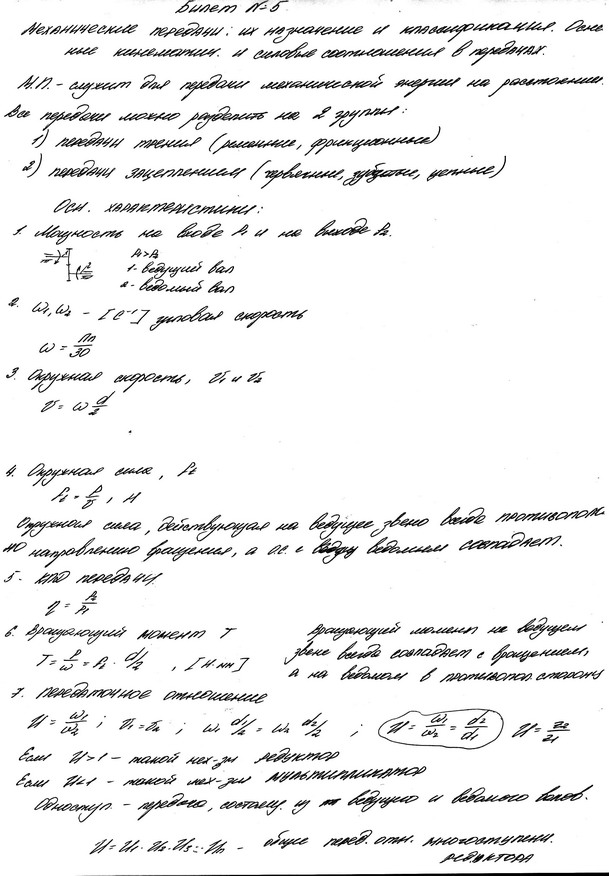 Билет №5
Механические передачи: их назначение и классификация. Осно
вные кинематич. и силовые соотношения в передачах.
М.П. - служит для передачи механической энергии на расстояние.
Все передачи можно разделить на 2 группы:
1) передачи трения (ременные, фрикционные)
2) передачи зацеплением (червячные, зубчатые, цепные)
Осн. характеристики:
1. Мощность на входе P₁ и на выходе P₂.
P₁>P₂
1 - ведущий вал
2 - ведомый вал
2. ω₁, ω₂ - [с⁻¹] угловая скорость
ω = πn/30
3. Окружная скорость, v₁ и v₂
v = ω d/2
4. Окружная сила, Ft
Ft = P/v, Н
Окружная сила, действующая на ведущее звено всегда противополож
но направлению вращения, а ос. с ведомым совпадает.
5. КПД передачи
η = P₂/P₁
6. Вращающий момент T
T = P/ω = Ft · d/2, [Н·мм]
Вращающий момент на ведущем
звене всегда совпадает с вращением,
а на ведомом в противопол сторону
7. Передаточное отношение
U = ω₁/ω₂ ; v₁ = v₂ ; ω₁ d₁/2 = ω₂ d₂/2 ; U = ω₁/ω₂ = d₂/d₁ U = z₂/z₁
Если U>1 - такой мех-зм редуктор
Если U<1 - такой мех-зм мультипликатор
Одноступ - передача, состоящ. из ведущего и ведомого валов.
U = U₁ · U₂ · U₃ … Uₙ - общее перед. отн. многоступени.
редуктора